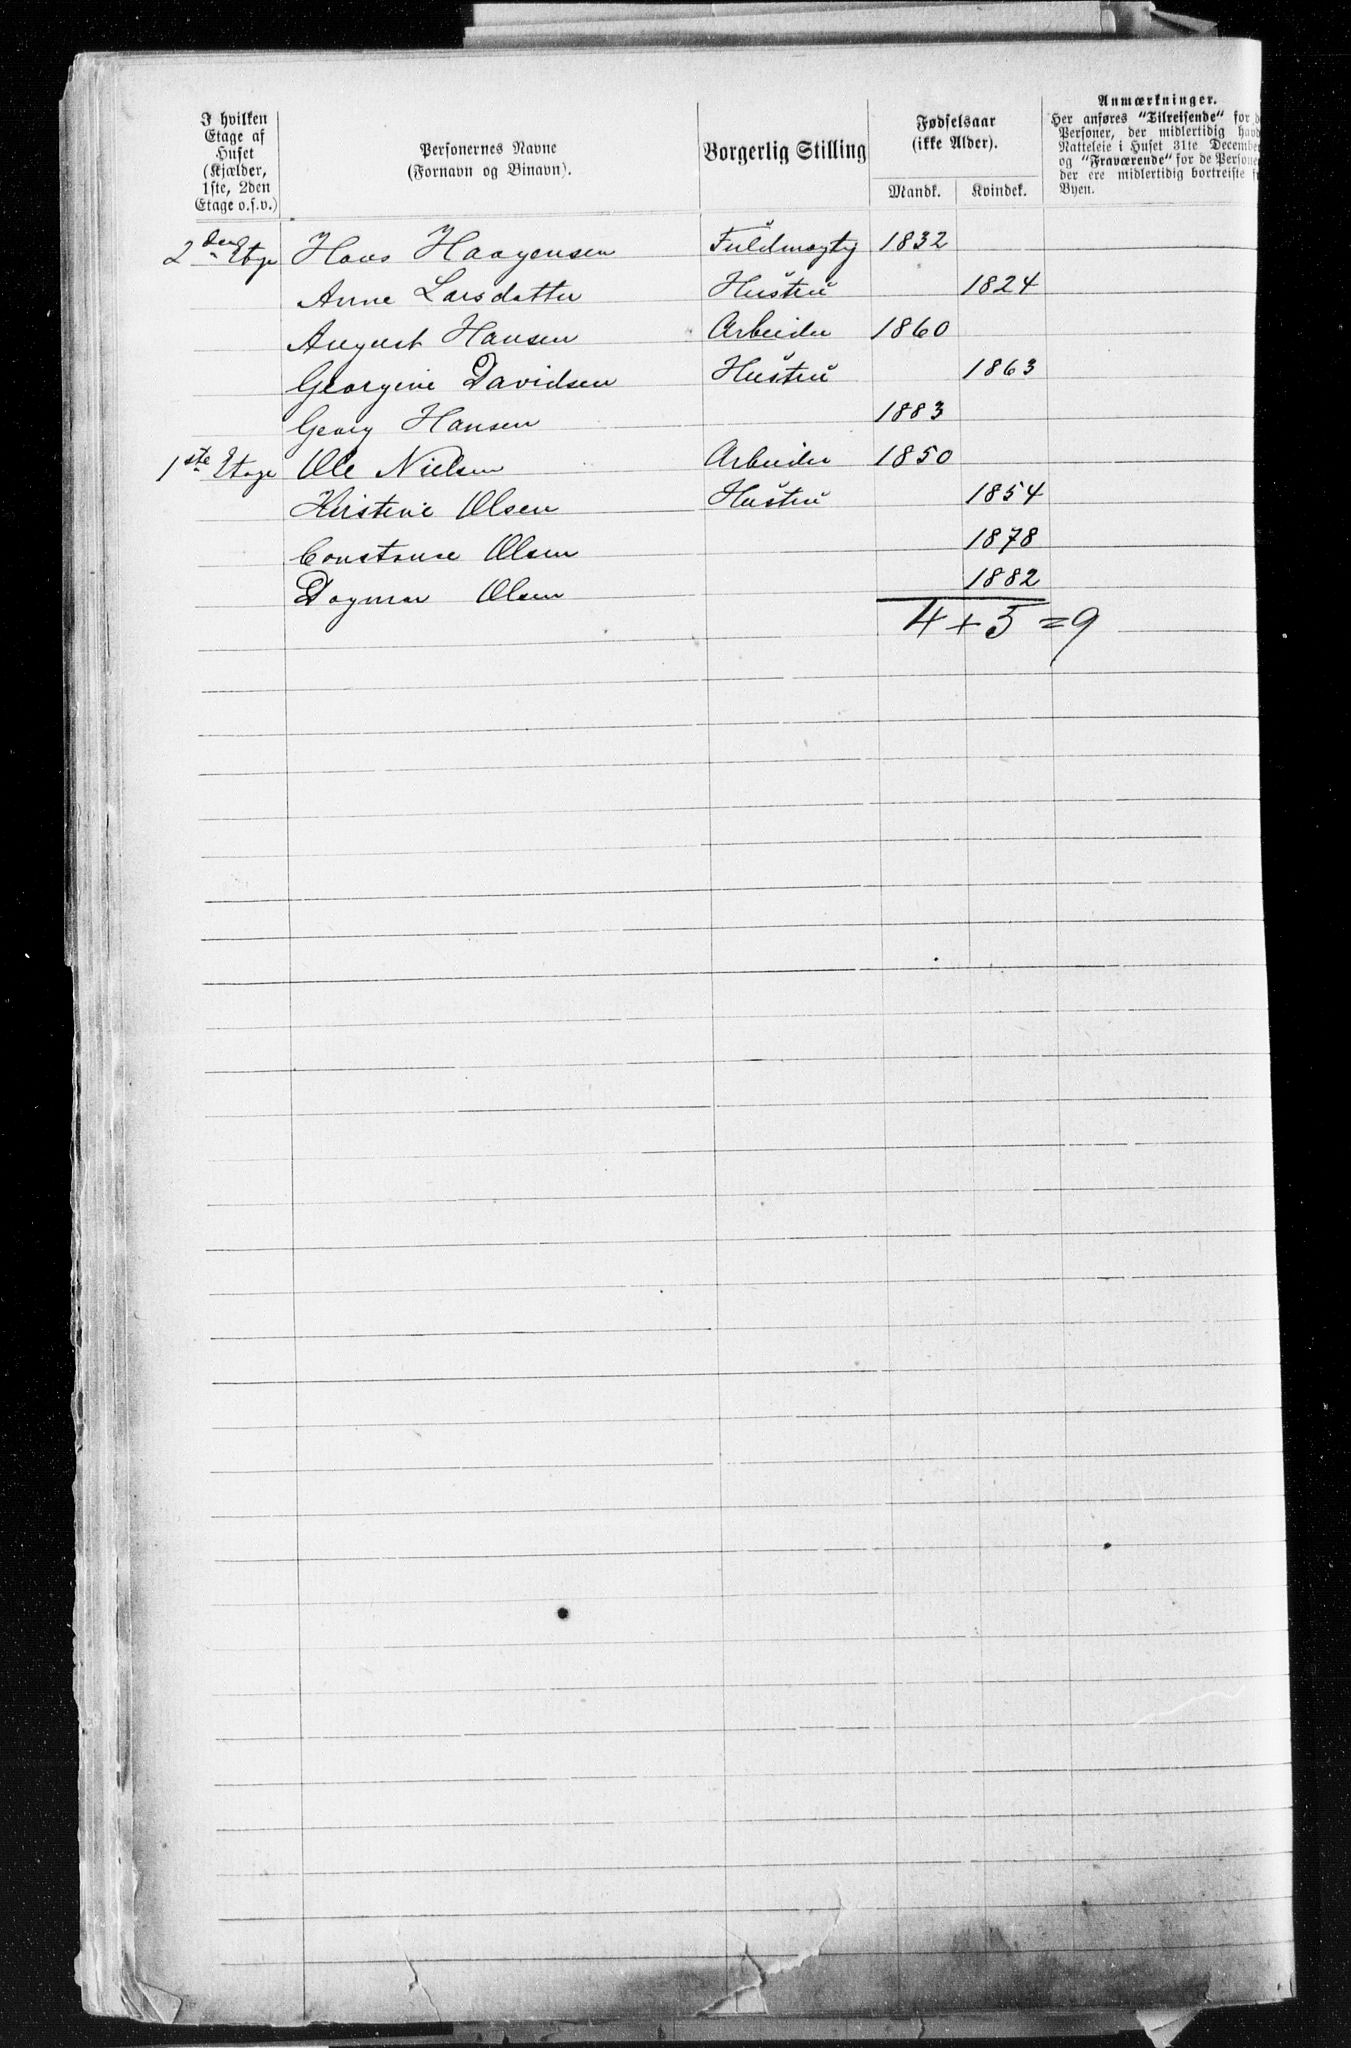 I hvilken
Etage af
Huset
(Kjælder,
1ste, 2den
Etage o.s.v.)
Personernes Navne
(Fornavn og Binavn).
Borgerlig Stilling
Fødselsaar
(ikke Alder).
Mandk. Kvindek.
Anmærkninger.
Her anføres "Tilreisende" for
Personer, der midlertidig
Natteleie i Huset 31te December
og "Fraværende" for de
der ere midlertidig bortreiste
Byen.
2den Etge Hans Haagensen Fuldmægtig 1832
Anne Larsdatter Hustru 1824
August Hansen Arbeider 1860
Georgine Davidsen Hustru 1863
Georg Hansen 1883
1ste Etage Ole Nielsen Arbeider 1850
Kirstine Olsen Hustru 1854
Constance Olsen 1878
Dagmar Olsen 1882
4 + 5 = 9